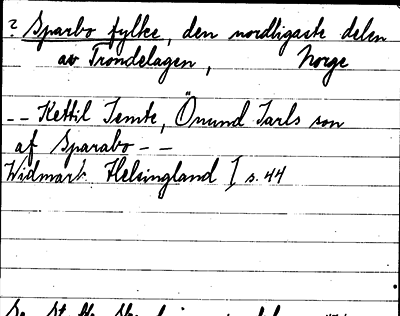 ? Sparbo fylke, den nordligaste delen
av Trondelagen, Norge
-- Kettil Jemte, Önund Jarls son
af Sparabo --
Widmark. Helsingland I, s. 44